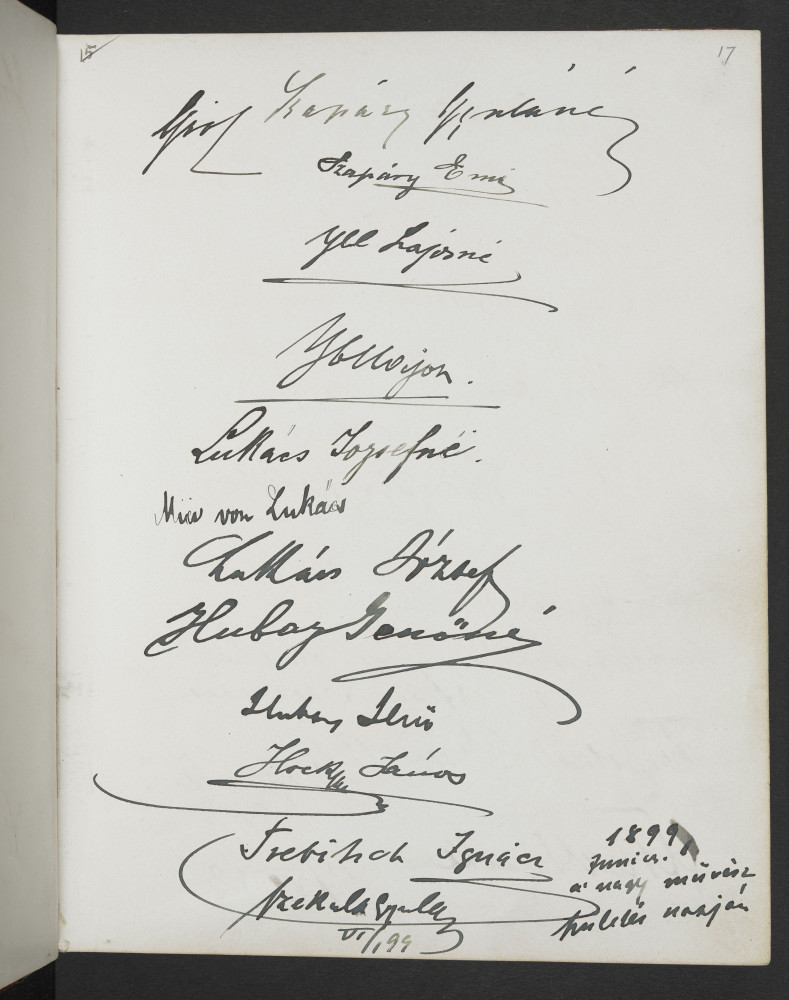 15
17
Gróf Szapáry Gyuláné
Szapáry Emi
Ybl Lajosné
Ybl Lajos.
Lukács Jozsefné.
von Lukács
Lukács József
Hubay Jenőné
Hubay Jenő
Hock János
Trebitsch Ignácz
1899
Junius.
a nagy művész
napján
Szekula Gyula
VI/99